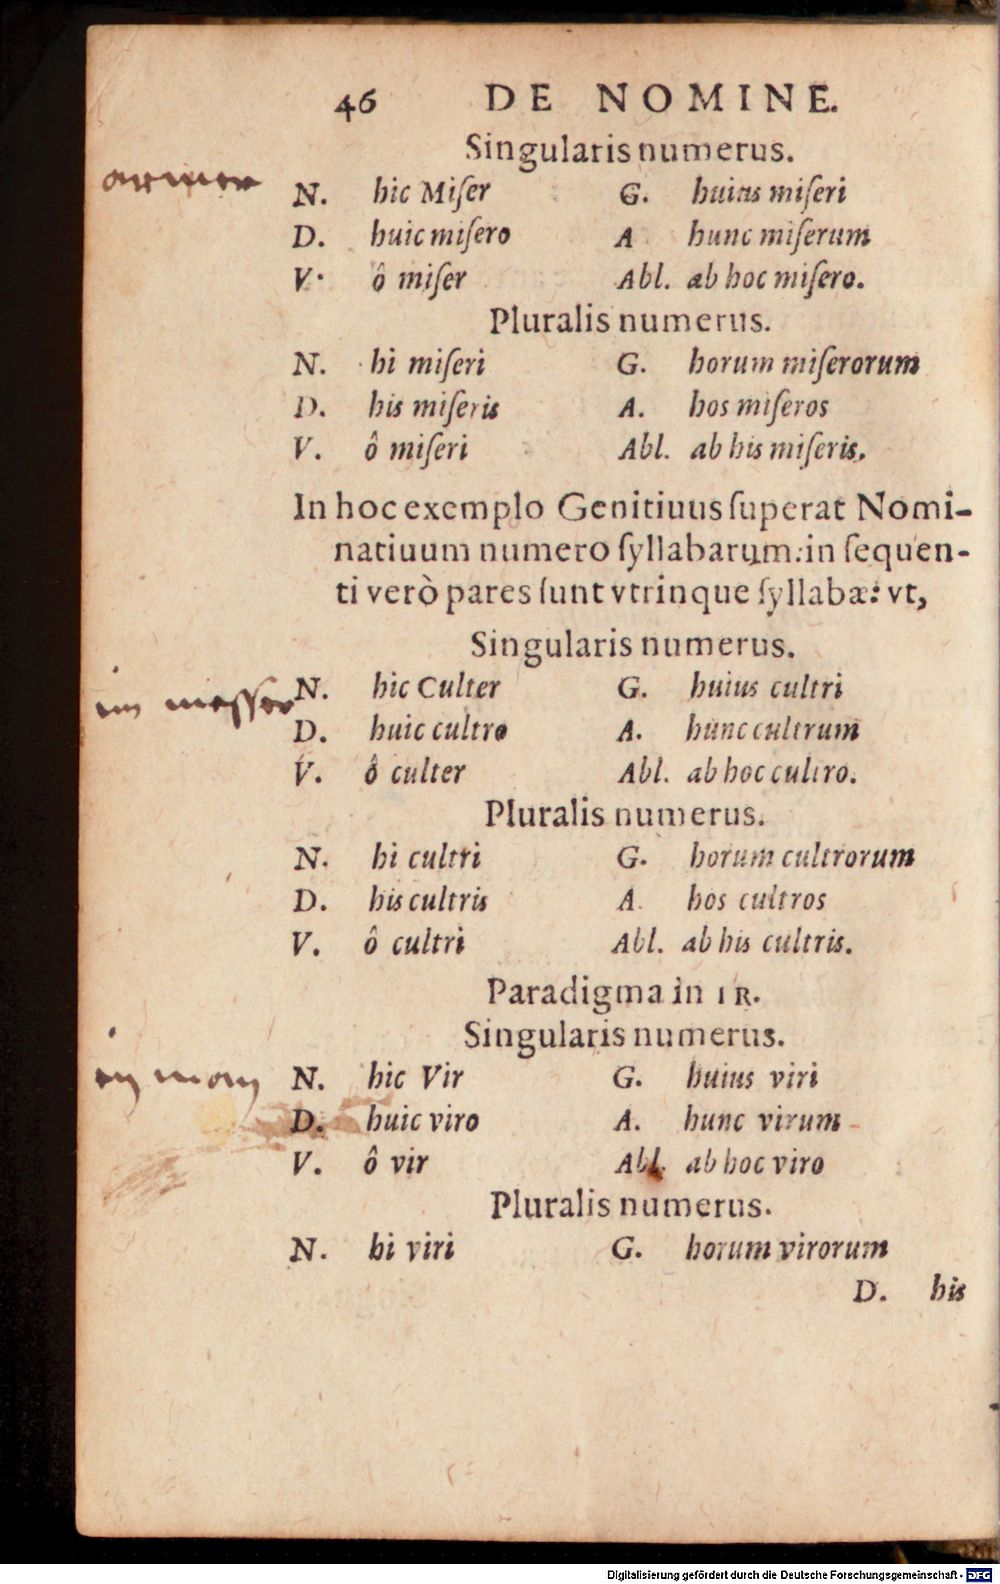 46 DE NOMINE.
Singularis numerus.
armer
N. hic Miſer G. huius miſeri
D. huic miſero A hunc miſerum
V. ô miſer Abl. ab hoc miſero.
Pluralis numerus.
N. hi miſeri G. horum miſerorum
D. his miſeris A. hos miſeros
V. ô miſeri Abl. ab his miſeris.
In hoc exemplo Genitiuus ſuperat Nomi-
natiuum numero ſyllabarum: in ſequen-
ti verò pares ſunt vtrinque ſyllabæ: vt,
Singularis numerus.
messer
N. hic Culter G. huius cultri
D. huic cultro A. hunc cultrum
V. ô culter Abl. ab hoc cultro.
Pluralis numerus.
N. hi cultri G. horum cultrorum
D. his cultris A. hos cultros
V. ô cultri Abl. ab his cultris.
Paradigma in IR.
Singularis numerus.
N. hic Vir G. huius viri
D. huic viro A. hunc virum
V. ô vir Abl. ab hoc viro
Pluralis numerus.
N. hi viri G. horum virorum
D. his
Digitalisierung gefördert durch die Deutsche Forschungsgemeinschaft - DFG